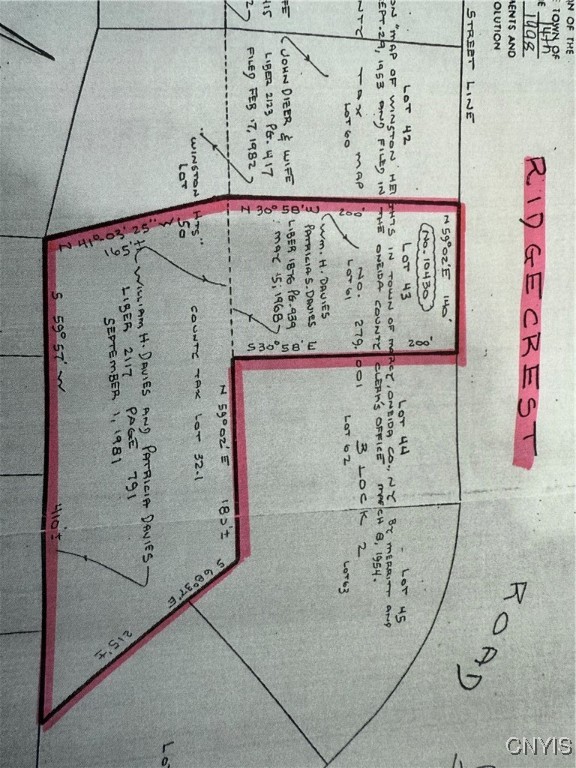 ON OF THE
E TOWN OF
MENTS AND
OLUTION
STREET LINE
RIDGECREST
ROAD
LOT 42
LOT 43
LOT 44
LOT 45
ON "MAP OF WINSTON HEIGHTS IN TOWN OF MARCY, ONEIDA CO., N.Y. BY MERRITT AND
SEPT. 29, 1953 AND FILED IN THE ONEIDA COUNTY CLERK'S OFFICE MARCH 8, 1954.
NTY TAX MAP NO. 279.001 BLOCK 2
LOT 60
LOT 61
LOT 62
LOT 63
N 59° 02' E 140'
(No. 10430)
N 30° 58' W 200'
S 30° 58' E 200'
WM. H. DAVIES
PATRICIA S. DAVIES
LIBER 1876 PG. 939
MAY 15, 1968
JOHN DIZER & WIFE
LIBER 2123 PG. 417
FILED FEB 17, 1982
"WINSTON HTS"
LOT 50
N 41° 03' 25" W
165'±
COUNTY TAX LOT 32.1
N 59° 02' E 185'±
WILLIAM H. DAVIES AND PATRICIA DAVIES
LIBER 2117 PAGE 791
SEPTEMBER 1, 1981
S 68° 37' E
215'±
S 59° 57' W 410'±
LO
CNYIS